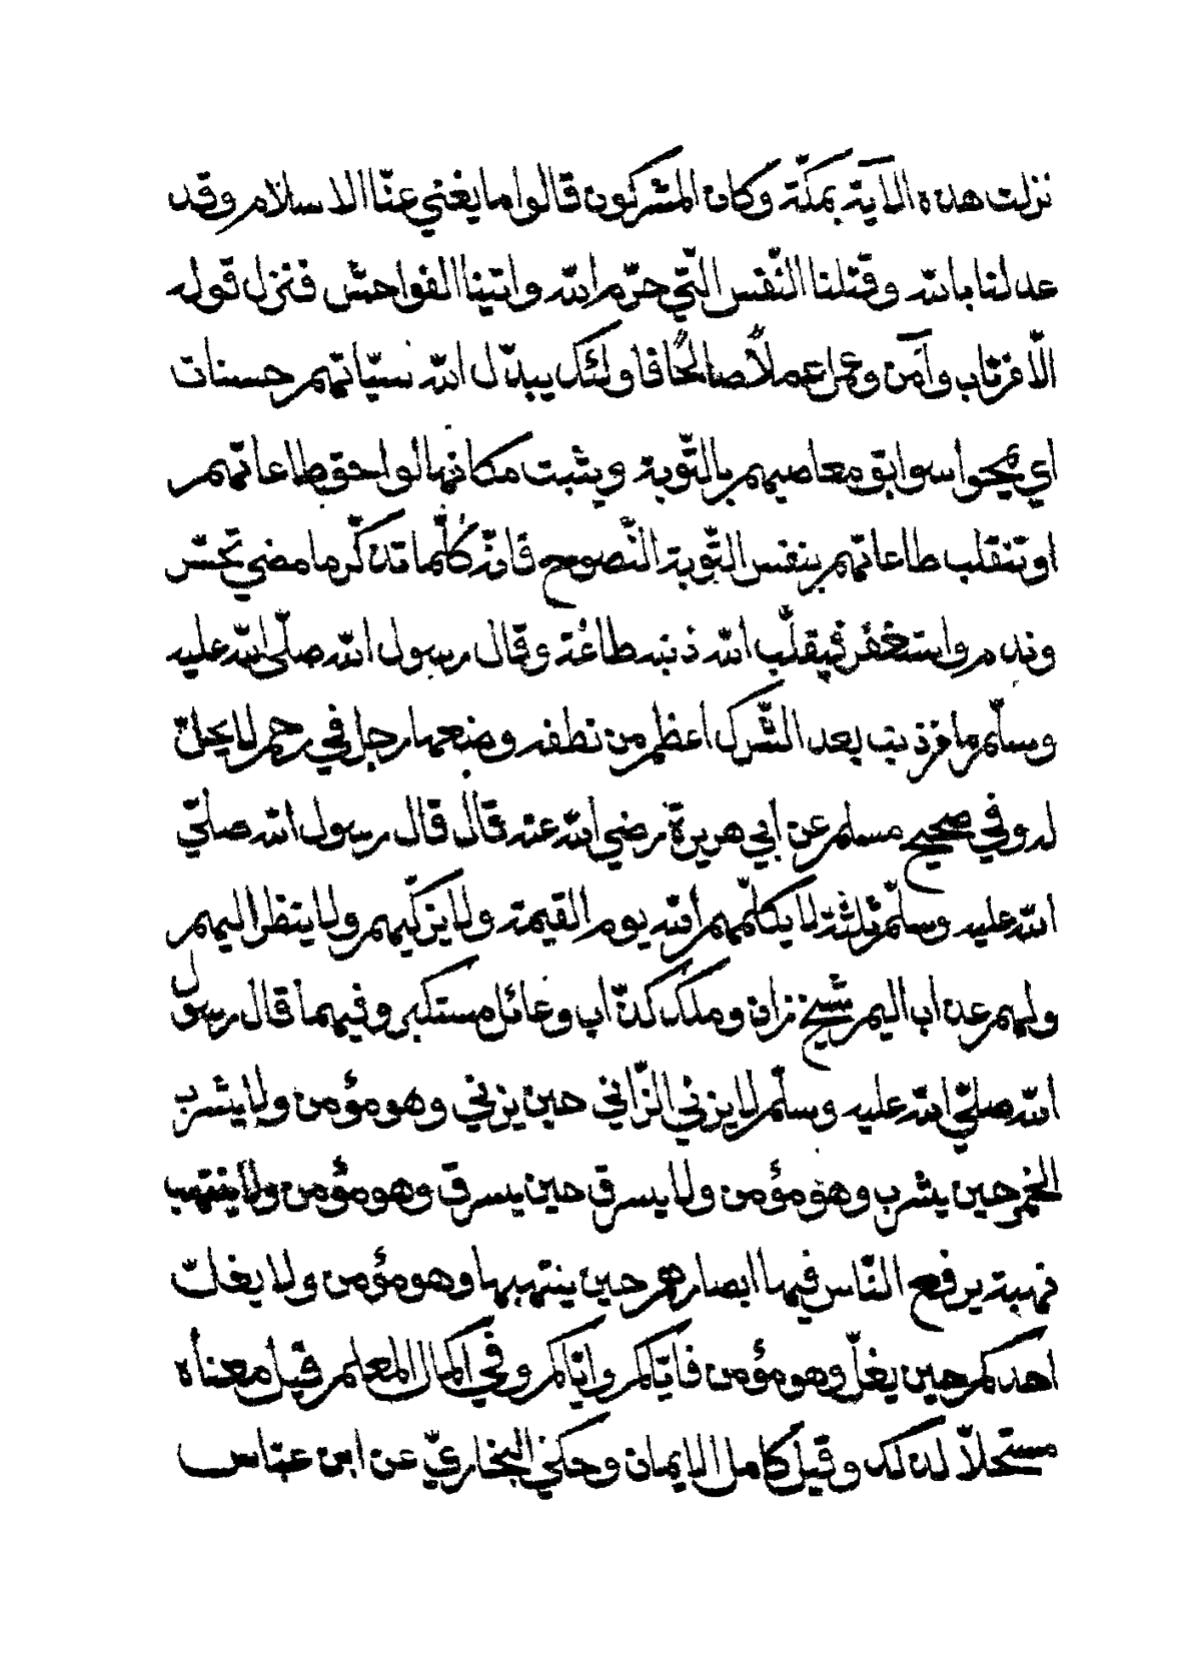 نزلت هذه الآية بمكّة وكان المشركون قالوا ما يغني عنّا الاسلام وقد
عدلنا بالله وقتلنا النّفس الّتي حرّم الله واتينا الفواحش فنزل قوله
الّا من تاب وآمن وعمل عملاً صالحًا فاولئك يبدّل الله سيّاتهم حسنات
اي يمحوا سوابق معاصيهم بالتّوبة ويثبت مكانها لواحق طاعاتهم
اوتنقلب طاعاتهم بنفس التّوبة النّصوح فانّه كلّما تذكّر ما مضي تحسّر
وندم واستغفر فيقلّب الله ذنبه طاعة وقال رسول الله صلّى الله عليه
وسلّم ما من ذنب بعد الشّرك اعظم من نطفه وضعها رجل في رحم لا يحلّ
له وفي صحيح مسلم عن ابي هريرة رضي الله عنه قال قال رسول الله صلّي
الله عليه وسلّم ثلثة لا يكلّمهم الله يوم القيمة ولا يزكّيهم ولا ينظر اليهم
ولهم عذاب اليم شيخ زان وملك كذّاب وعائل مستكبر وفيهما قال رسول
الله صلّي الله عليه وسلّم لا يزني الزّاني حين يزني وهو مؤمن ولا يشرب
الخمر حين يشرب وهو مؤمن ولا يسرق حين يسرق وهو مؤمن ولا ينتهب
نهبة يرفع النّاس فيها ابصارهم حين ينتهبها وهو مؤمن ولا يغلّ
احدكم حين يغلّ وهو مؤمن فايّاكم وايّاكم وفي اكمال المعلم قيل معناه
مستحلاّ لذلك وقيل كامل الايمان وحكي البخاريّ عن ابن عبّاس